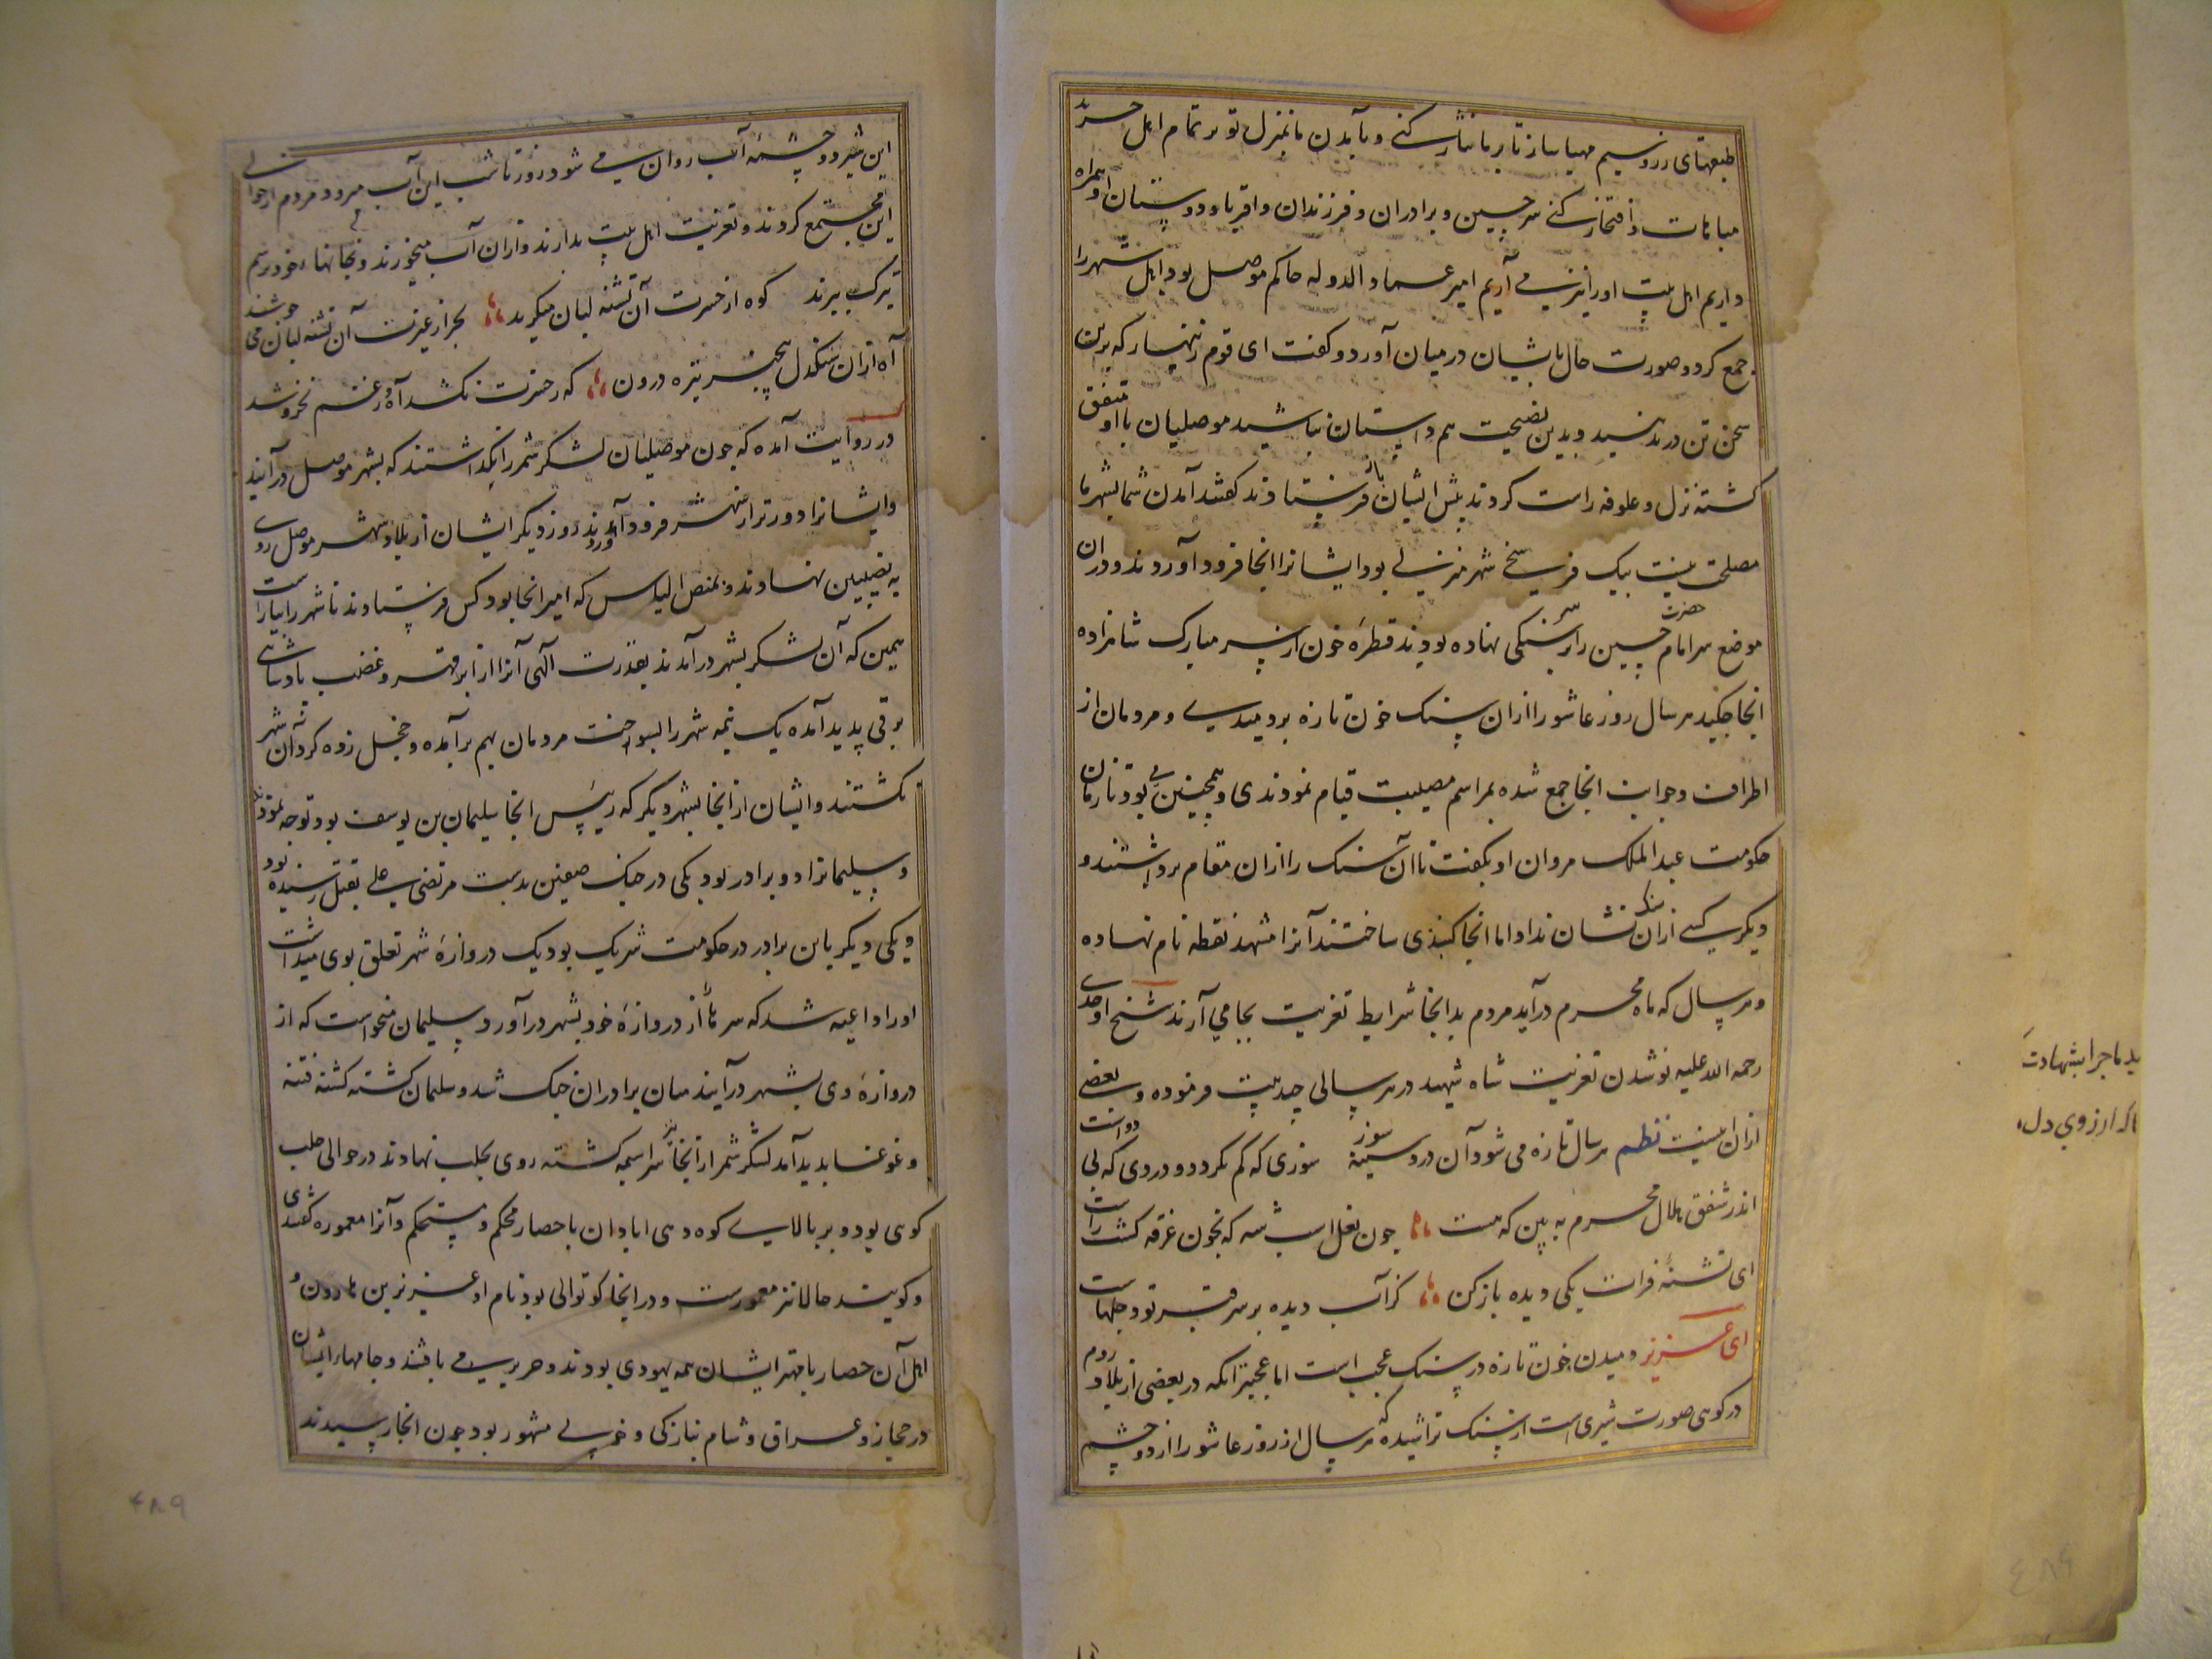 طبقهای زر و سیم مهیا ساز تا بر ما نثار کنی و بآمدن ما بمنزل تو بر تمام اهل جزیره
مباهات و افتخار کنی سر حسین و برادران و فرزندان و اقربا و دوستان او همراه
داریم اهل بیت او را نیز می آریم امیر عماد الدوله حاکم موصل بود اهل شهر را
جمع کرد و صورت حال با ایشان در میان آورد و گفت ای قوم زنهار که برین
سخن تن در ندهید و بدین فضیحت هم داستان نباشید موصلیان با او متفق
کشته نزل و علوفه راست کردند پیش ایشان باز فرستادند گفتند آمدن شما بشهر ما
مصلحت نیست بیک فرسخی شهر منزلی بود ایشانرا انجا فرود آوردند و در ان
موضع سر امام حضرت حسین را بر سنکی نهاده بودند قطرهٔ خون از سر مبارک شاهزاده
انجا چکید هر سال روز عاشورا ازان سنک خون تازه بر دمیدی و مردمان از
اطراف و جوانب انجا جمع شده بمراسم مصیبت قیام نمودندی و همچنین می بود تا زمان
حکومت عبد الملک مروان او بگفت تا آن سنک را ازان مقام برداشتند و
دیگر کسی ازان سنک نشان نداد اما انجا کنبذی ساختند آنرا مشهد نقطه نام نهاده
و هر سال که ماه محرم درآید مردم بدانجا شرایط تعزیت بجا می آرند شیخ اوحدی
رحمه الله علیه نو شدن تعزیت شاه شهید در هر سالی چند بیت فرموده و بعضی
ازان اینست نظم هر سال تازه می شود آن درد سینه سوز سوزی که کم نکردد و دردی که بی دواست
اندر شفق هلال محرم ببین که هست چون نعل اسب شه که بخون غرقه کشت راست
ای تشنهٔ فرات یکی دیده باز کن کز آب دیده بر سر قبر تو دجلهاست
ای عزیز دمیدن خون تازه در سنک عجب است اما عجبتر انکه در بعضی از بلاد روم
در کوهی صورت شیری است از سنک تراشیده که هر سال از روز عاشورا از دو چشم
ید ماجرا بشهادت
که ارزوی دل
این شیر دو چشمهٔ آب روان می شود و روز تا شب این آب میرود مردم از حوالی
این مجتمع کردند و تعزیت اهل بیت بدارند و ازان آب میخورند و بخانهاء خود برسم
تبرک ببرند کوه از حسرت آن تشنه لبان میکرید بحر از غیرت آن تشنه لبان می جوشد
آه ازان سنکدل بیخبر تیره درون که ز حسرت نکشد آه و ز غم نخروشد
در روایت آمده که چون موصلیان لشکر شمر را نکداشتند که بشهر موصل درآیند
و ایشانرا دورتر از شهر فرود آوردند روز دیگر ایشان از بلاد شهر موصل روی
به نصیبین نهادند و بمنصور الیاس که امیر انجا بود کس فرستادند تا شهر را بیاراست
همین که آن لشکر بشهر درآمدند بقدرت آلهی آنرا از ابر قهر و غضب پادشاهی
برقی پدید آمده یک نیمه شهر را بسوخت مردمان بهم برآمده و خجل زده کرد آن شهر
نکشتند و ایشان از انجا بشهر دیگر که رئیس انجا سلیمان بن یوسف بود توجه نمودند
و سلیمانرا دو برادر بود یکی در جنک صفین بدست مرتضی علی بقتل رسیده بود
و یکی دیگر با این برادر در حکومت شریک بود یک دروازهٔ شهر تعلق بوی میداشت
او را داعیه شد که سرها از دروازهٔ خود بشهر درآورد و سلیمان میخواست که از
دروازهٔ وی بشهر درآیند میان برادران جنک شد و سلیمان کشته کشته فتنه
و غوغا پدید آمد لشکر شمر از انجا نیز سراسیمه کشته روی بحلب نهادند در حوالی حلب
کوهی بود و بر بالای کوه دهی ابادان با حصار محکم و مستحکم و آنرا معموره گفتندی
و کویند حالا نیز معمورست و در انجا کوتوالی بود نام او عزیز بن هارون و
اهل آن حصار با مهتر ایشان همه یهودی بودند و حریر می بافتند و جامهاء ایشان
در حجاز و عراق و شام بنازکی و خوبی مشهور بود چون انجا رسیدند
۴۸۹